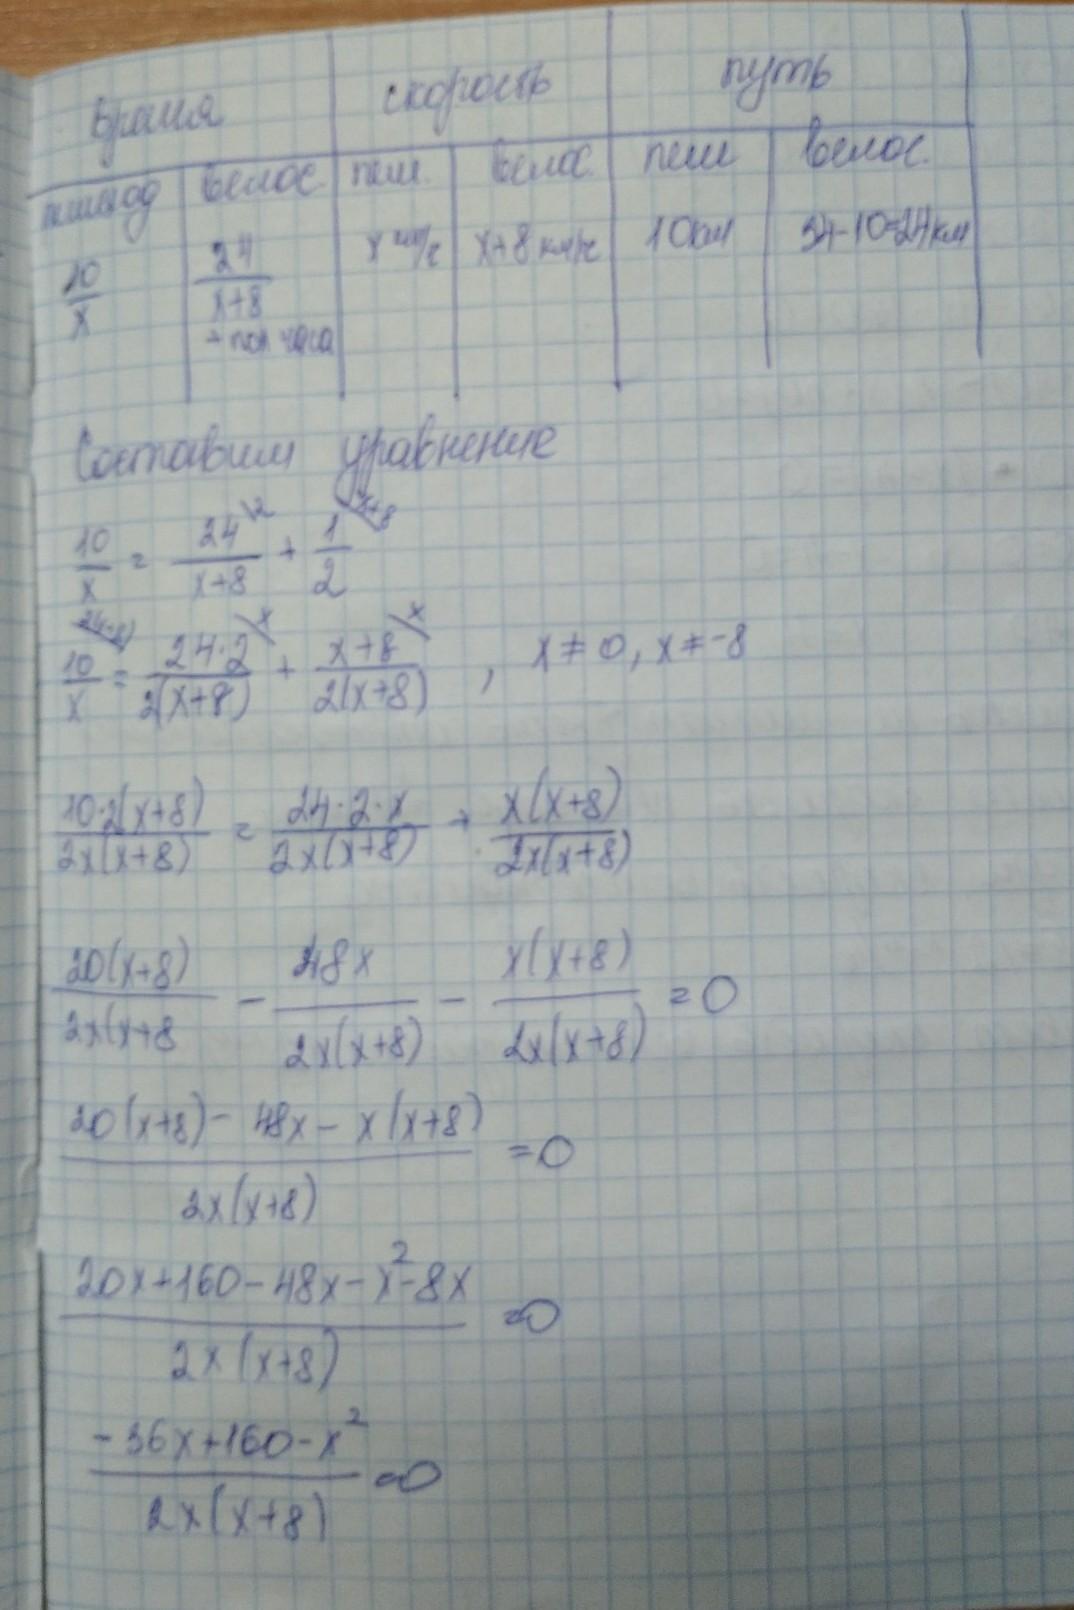 Время скорость путь
пешеход велос. пеш. велос. пеш велос.
10/x 24/(x+8) x км/ч x+8 км/ч 10км 34-10=24км
+ пол часа
Составим уравнение
10/x = 24\2/(x+8) + 1\x+8/2
10/x = 24·2\x/2(x+8) + x+8\x/2(x+8) , x≠0, x≠-8
10·2(x+8)/2x(x+8) = 24·2·x/2x(x+8) + x(x+8)/2x(x+8)
20(x+8)/2x(x+8 - 48x/2x(x+8) - x(x+8)/2x(x+8) = 0
20(x+8)- 48x - x(x+8)/2x(x+8) =0
20x+160-48x-x²-8x/2x(x+8) =0
-36x+160-x²/2x(x+8) =0